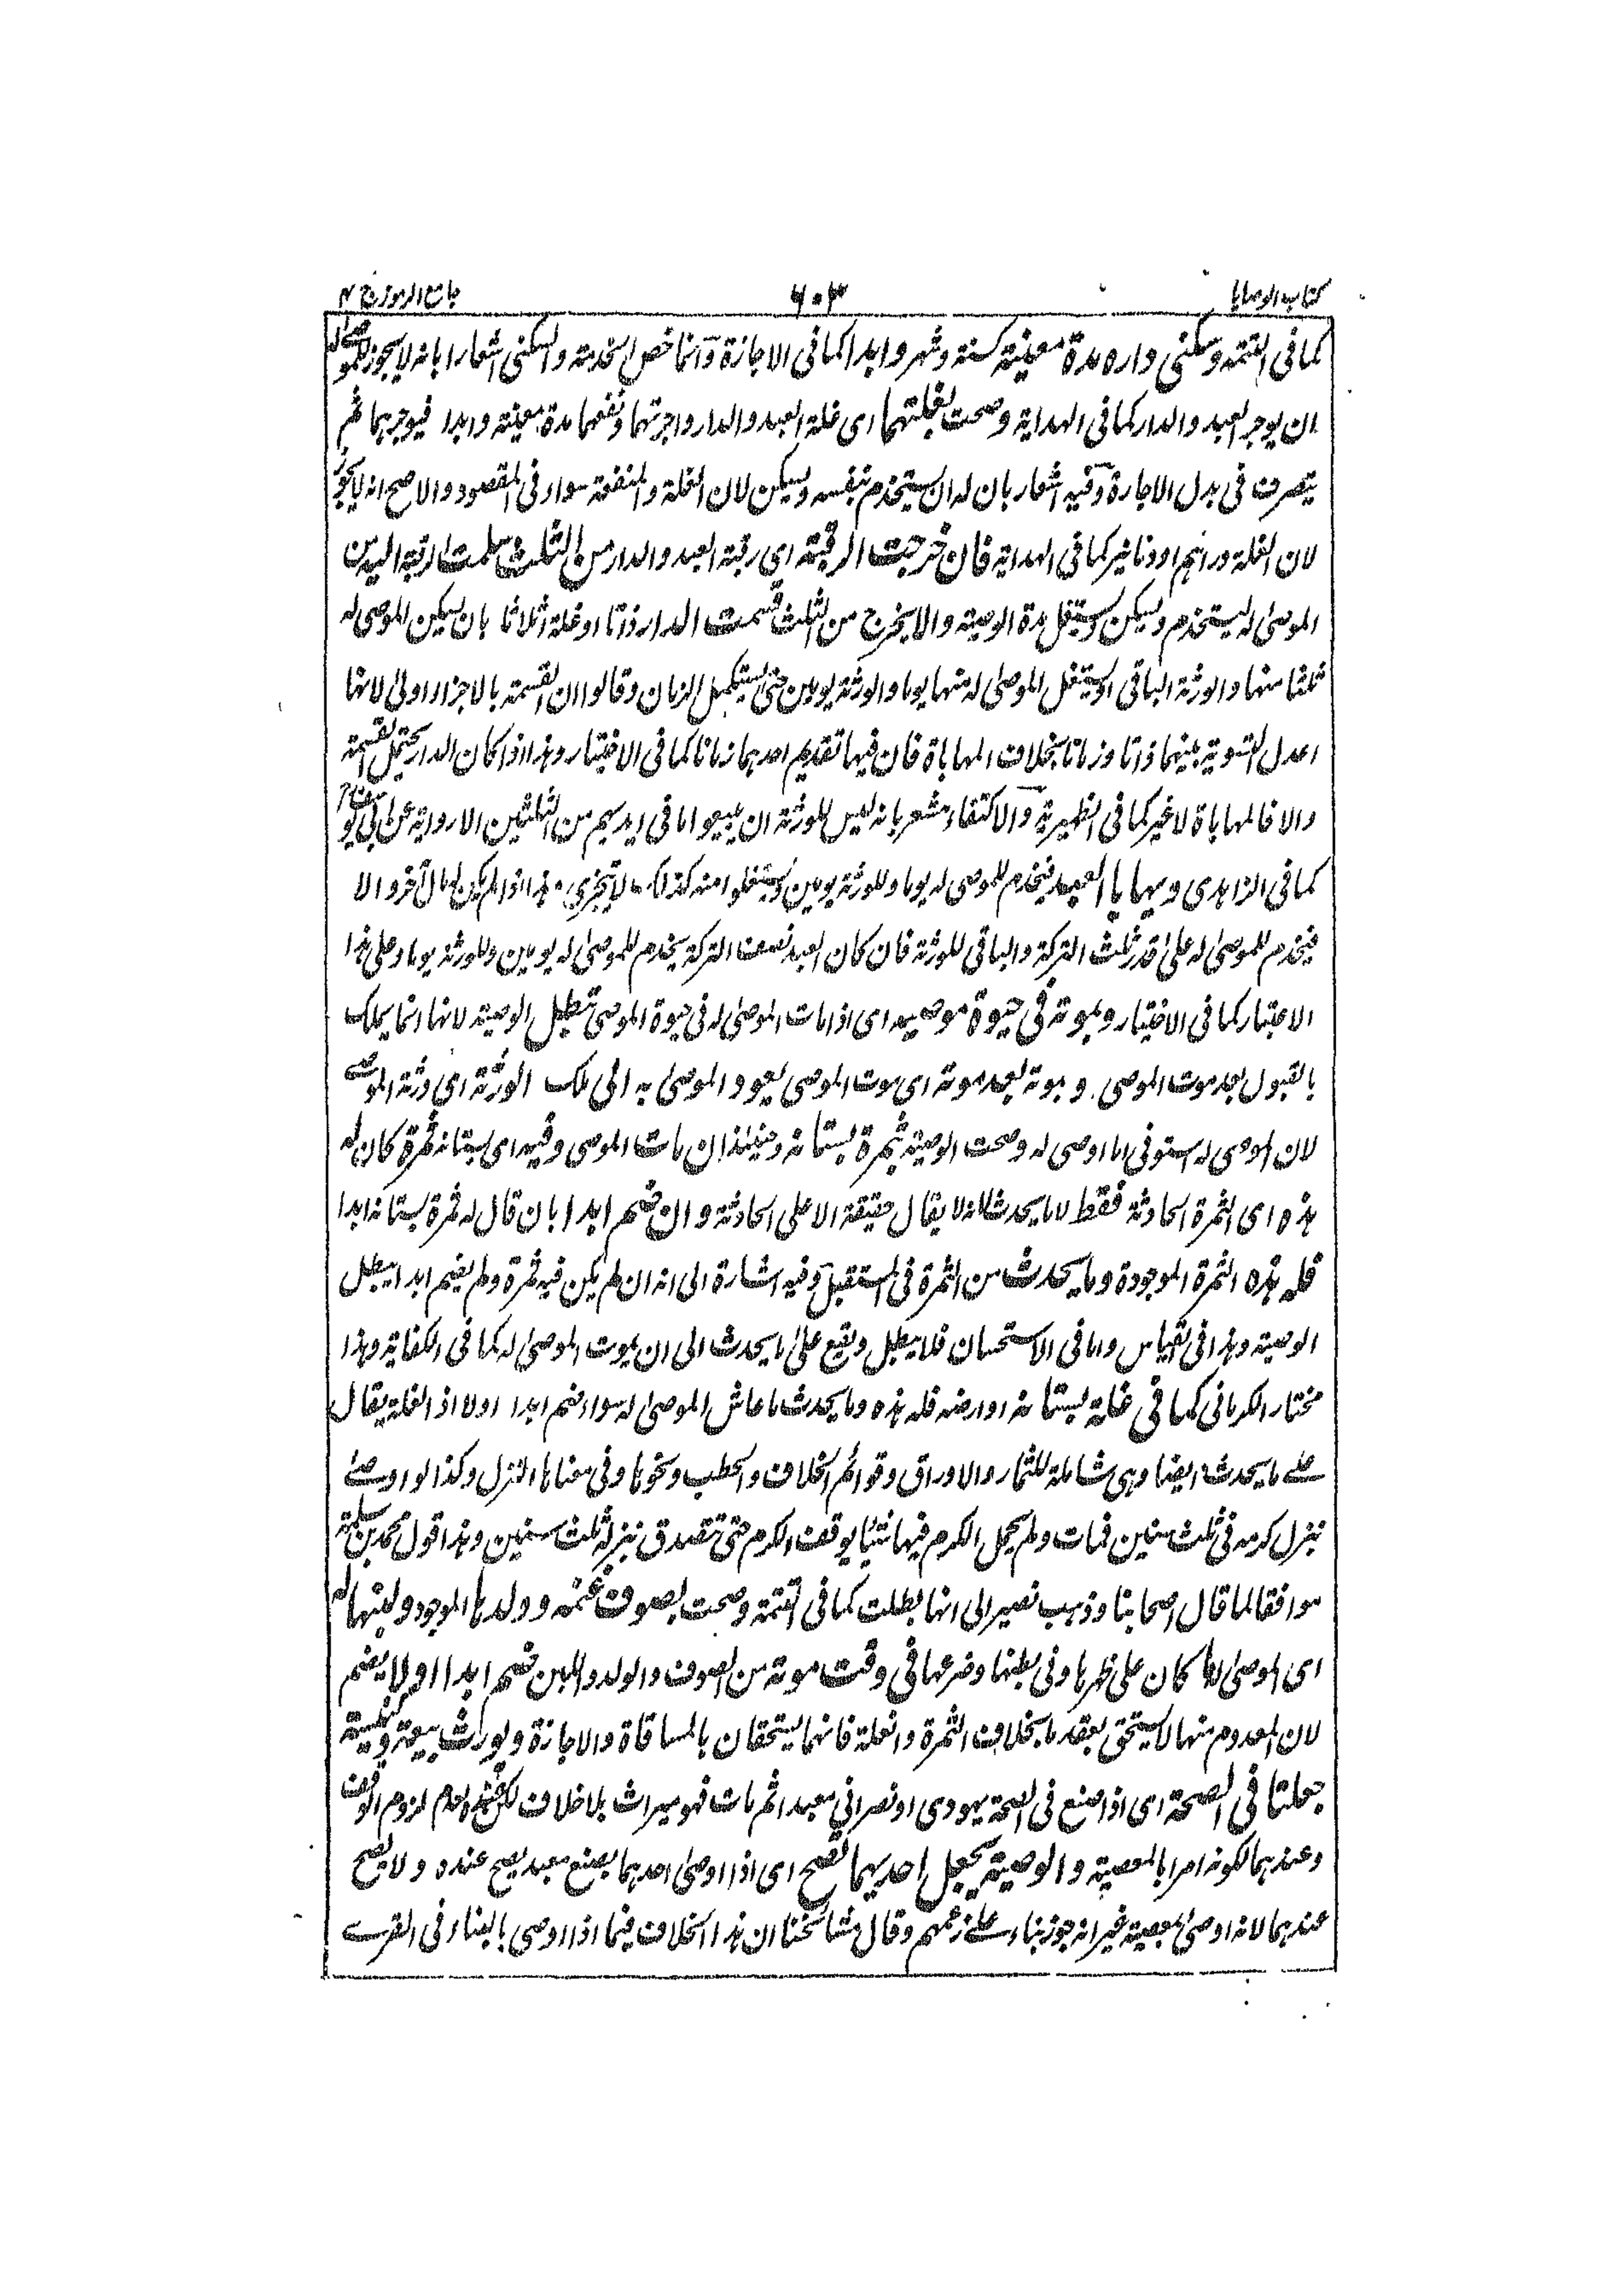 كتاب الوصايا ٦٠٣ جامع الرموز ج ٤
كما فى التتمة وسكنى داره مدة معينة كسنة وشهر وابدا كما فى الاجارة وانما خص الخدمة والسكنى اشعارا بانه لا يجوز للموصى له
ان يوجر العبد والدار كما فى الهداية وصحت بغلتهما اى غلة العبد والدار واجرتهما ونفعهما مدة معينة وابدا فيوجرهما ثم
يتصرف فى بدل الاجارة وفيه اشعار بان له ان يستخدم بنفسه ويسكن لان الغلة والمنفعة سواء فى المقصود والاصح انه لا يجوز
لان الغلة دراهم او دنانير كما فى الهداية فان خرجت الرقبة اى رقبة العبد والدار من الثلث سلمت الرقبة اليه من
الموصىٰ له ليستخدم ويسكن ويستغل مدة الوصية والا يخرج من الثلث قسمت الدار ذاتا او غلة اثلاثا بان يسكن الموصى له
ثلثا منها والورثة الباقى او يستغل الموصىٰ له منها يوما والورثة يومين حتى يستكمل الزمان وقالوا ان القسمة بالاجزاء اولىٰ لانها
اعدل للتسوية بينهما ذاتا وزمانا بخلاف المهاياة فان فيها تقديم احدهما زمانا كما فى الاختيار وهذا اذا كان الدار يحتمل القسمة
والا فالمهاياة لا غير كما فى الظهيرية والاكتفاء مشعر بانه ليس للورثة ان يبيعوا ما فى ايديهم من الثلثين الا رواية عن ابى يوسف
كما فى الزاهدى ويهايا العبد فيخدم للموصى له يوما وللورثة يومين ويستغلوا منه كذلك لا يتجزى هذا اذا لم يكن له مال آخر والا
فيخدم للموصىٰ له علىٰ قدر ثلث التركة والباقى للورثة فان كان العبد نصف التركة يخدم للموصىٰ له يومين وللورثة يوما وعلى هذا
الاعتبار كما فى الاختيار وبموته فى حيوة موصيه اى اذا مات الموصىٰ له فى حيوة الموصى تبطل الوصية لانها انما يملك
بالقبول بعد موت الموصى وبموته بعد موته اى موت الموصى يعود الموصىٰ به الى ملك الورثة اى ورثة الموصى
لان الموصى له استوفى ما اوصى له وصحت الوصية بثمرة بستانه وحينئذ ان مات الموصى وفيه اى بستانه ثمرة كان له
هذه اى الثمرة الحادثة فقط لا ما يحدث لانه لا يقال حقيقة الا على الحادثة وان ضم ابدا بان قال له ثمرة بستانه ابدا
فله هذه الثمرة الموجودة وما يحدث من الثمرة فى المستقبل وفيه اشارة الى انه ان لم يكن فيه ثمرة ولم يضم ابدا يبطل
الوصية وهذا فى القياس واما فى الاستحسان فلا يبطل ويقع علىٰ ما يحدث الى ان يموت الموصىٰ له كما فى الكفاية وهذا
مختار الكرمانى كما فى غلة بستانه او ارضه فله هذه وما يحدث ما عاش الموصىٰ له سواء ضم ابدا اولا اذ الغلة يقال
على ما يحدث ايضا وهى شاملة للثمار والاوراق وقوائم الخلاف والحطب ونحوها وفى معناها النزل وكذا لو اوصى
بنزل كرمه فى ثلث سنين فمات ولم يحمل الكرم فيها شيئا يوقف الكرم حتى تتصدق بنزله ثلث سنين وهذا قول محمد بن سلمة
موافقا لما قال اصحابنا وذهب نصير الى انها بطلت كما فى التتمة وصحت بصوف غنمه وولدها الموجود ولبنها له
اى الموصىٰ له ما كان على ظهرها وفى بطنها وضرعها فى وقت موته من الصوف والولد واللبن ضم ابدا اولا يضم
لان المعدوم منها لا يستحق بعقد ما بخلاف الثمرة والغلة فانهما يستحقان بالمساقاة والاجارة ويورث بيعة وكنيسة
جعلتا فى الصحة اى اذا صنع فى الصحة يهودى او نصرانى معبدا ثم مات فهو ميراث بلا خلاف لكن عنده لعدم لزوم الوقف
وعندهما لكونه امرا بالمعصية والوصية بجعل احديهما تصح اى اذا اوصىٰ احدهما بصنع معبد يصح عنده ولا يصح
عندهما لانه اوصىٰ بمعصية غير انه جوز بناء علىٰ زعمهم وقال مشائخنا ان هذا الخلاف فيما اذا اوصى بالبناء فى القرى